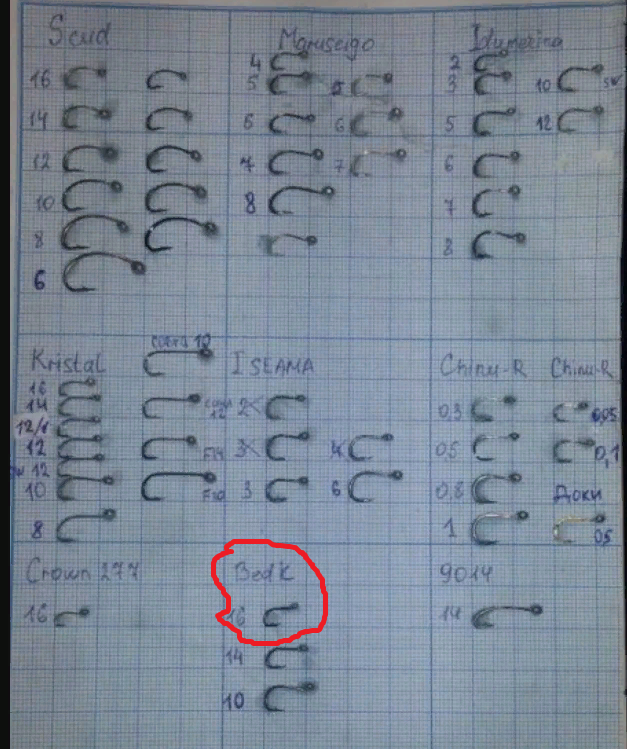 Scud
16
14
12
10
8
6
Maruseigo
4
5 5
6 6
7 7
8
Idumezina
2
3 10 SW
5 12
6
7
8
Kristal
16
14
12/1
12
12
10
8
12
12
F14
F10
ISEAMA
2X
3X 4
3 6
Chinu-R Chinu-R
0,3 0,05
0,5 0,1
0,8 Доки
1 05
Crown 277
16
BedK
16
14
10
9014
14